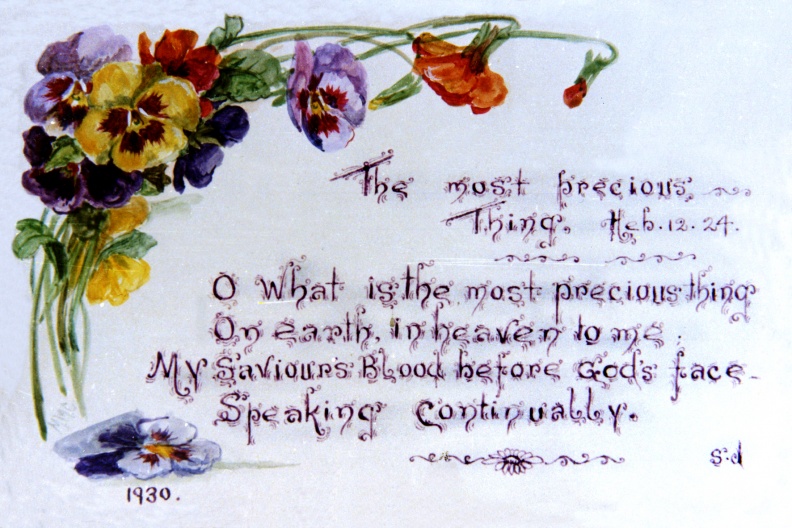 The most precious
Thing. Heb. 12. 24.
O What is the most precious thing
On earth, in heaven to me;
My Saviours Blood before God's face -
Speaking Continually.
S.J
1930.